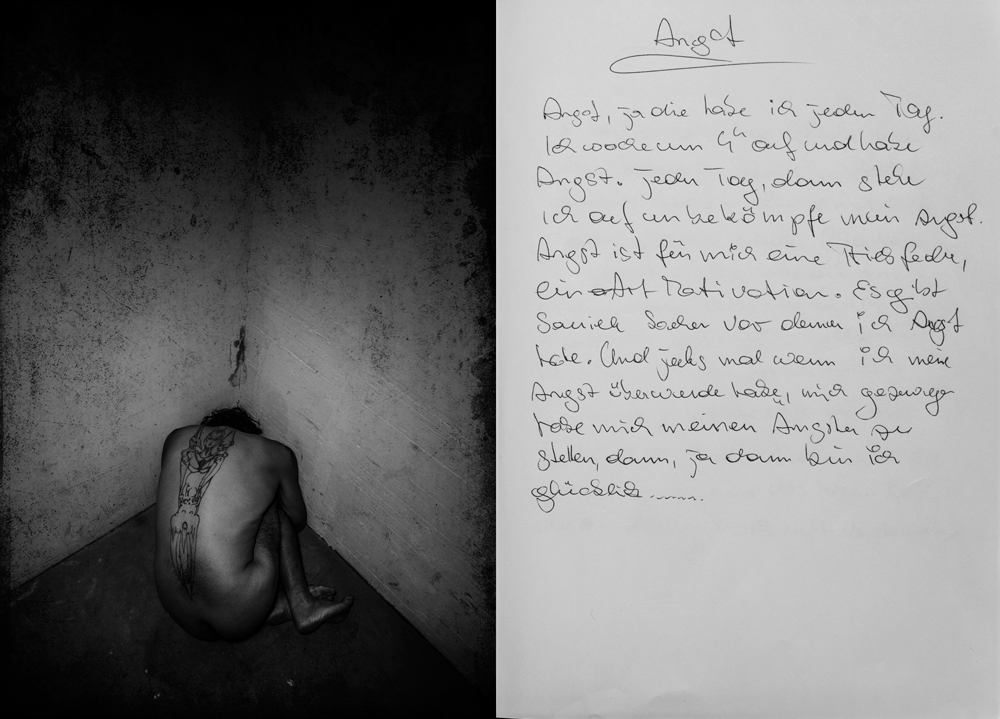 Angst
Angst, ja die habe ich jeden Tag.
Ich wache um 4°° auf und habe
Angst. Jeden Tag, dann stehe
ich auf un bekämpfe mein Angst.
Angst ist für mich eine Triebfeder,
ein Art Motivation. Es gibt
Sachen vor denen ich Angst
habe. Und jedes mal wenn ich meine
Angst überwunde habe, mich gezwungen
habe mich meinen Ängsten zu
stellen, dann, ja dann bin ich
glücklich........